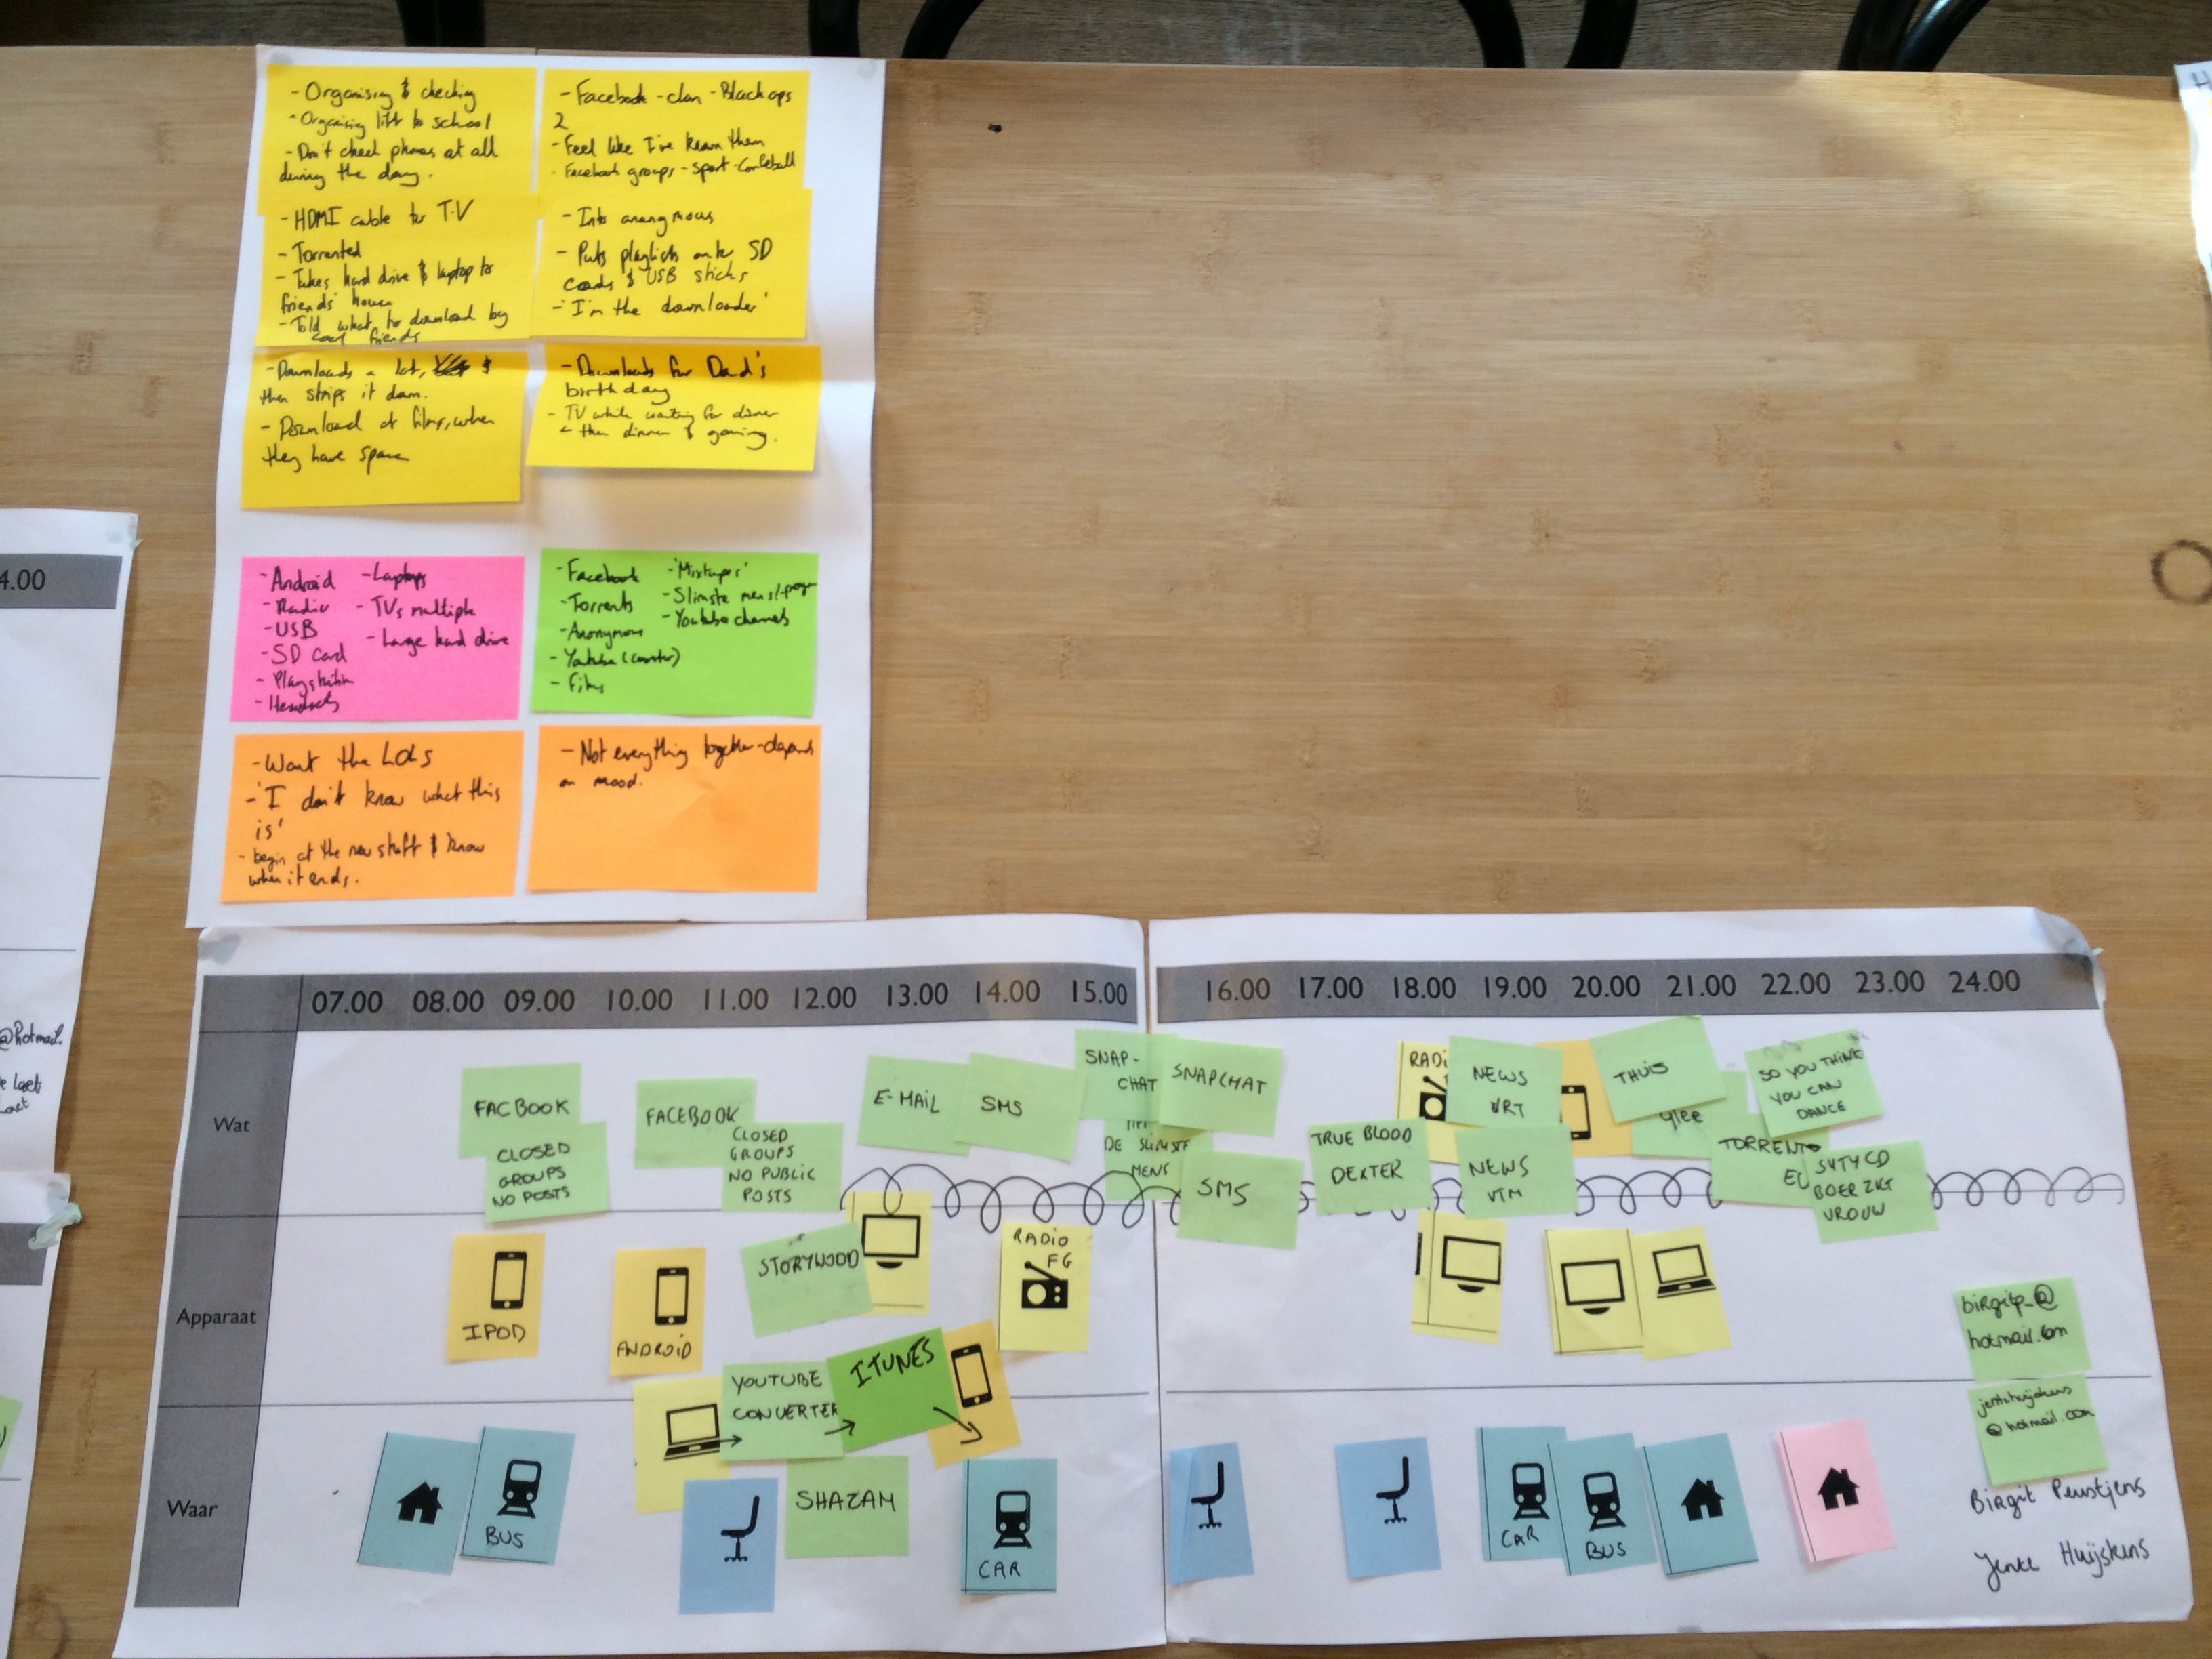 - Organising & checking
- Organising lift to school
- Don't check phones at all
during the day.
- Facebook - clan - Black ops
2
- Feel like I've known them
- Facebook groups - sport -
- HDMI cable for T.V
- Torrented
- Takes hard drive & laptop to
friends' house
- Told what to download by
cool friends
- Into anonymous
- Puts playlists onto SD
cards & USB sticks
- 'I'm the downloader'
- Downloads a lot, &
then strips it down.
- Download of films, when
they have space
- Downloads for Dad's
birthday
- TV while waiting for dinner
- then dinner & gaming.
- Android
- Radio
- USB
- SD Card
- Playstation
- Headsets
- Laptops
- TVs multiple
- Large hard drive
- Facebook
- Torrents
- Anonymous
- Youtube (converter)
- Films
- 'Mixtapes'
- Slimste mens
- Youtube channels
- Want the LOLs
- 'I don't know what this
is'
- begin at the new stuff & know
when it ends.
- Not everything together - depends
on mood.
4.00
@hotmail.
07.00 08.00 09.00 10.00 11.00 12.00 13.00 14.00 15.00 16.00 17.00 18.00 19.00 20.00 21.00 22.00 23.00 24.00
Wat
FACBOOK
CLOSED
GROUPS
NO POSTS
FACEBOOK
CLOSED
GROUPS
NO PUBLIC
POSTS
E-MAIL
SMS
SNAP-
CHAT
DE SLIMSTE
MENS
SNAPCHAT
SMS
TRUE BLOOD
DEXTER
RADI
NEWS
VRT
NEWS
VTM
THUIS
GLEE
SO YOU THINK
YOU CAN
DANCE
TORRENTO
SYTYCD
BOER ZKT
VROUW
Apparaat
IPOD
ANDROID
STORYWOOD
RADIO
FG
YOUTUBE
CONVERTER
ITUNES
birgitp_@
hotmail.com
jentehuijskens
@hotmail.com
Waar
BUS
SHAZAM
CAR
CAR
BUS
Birgit Peustjens
Jente Huijskens